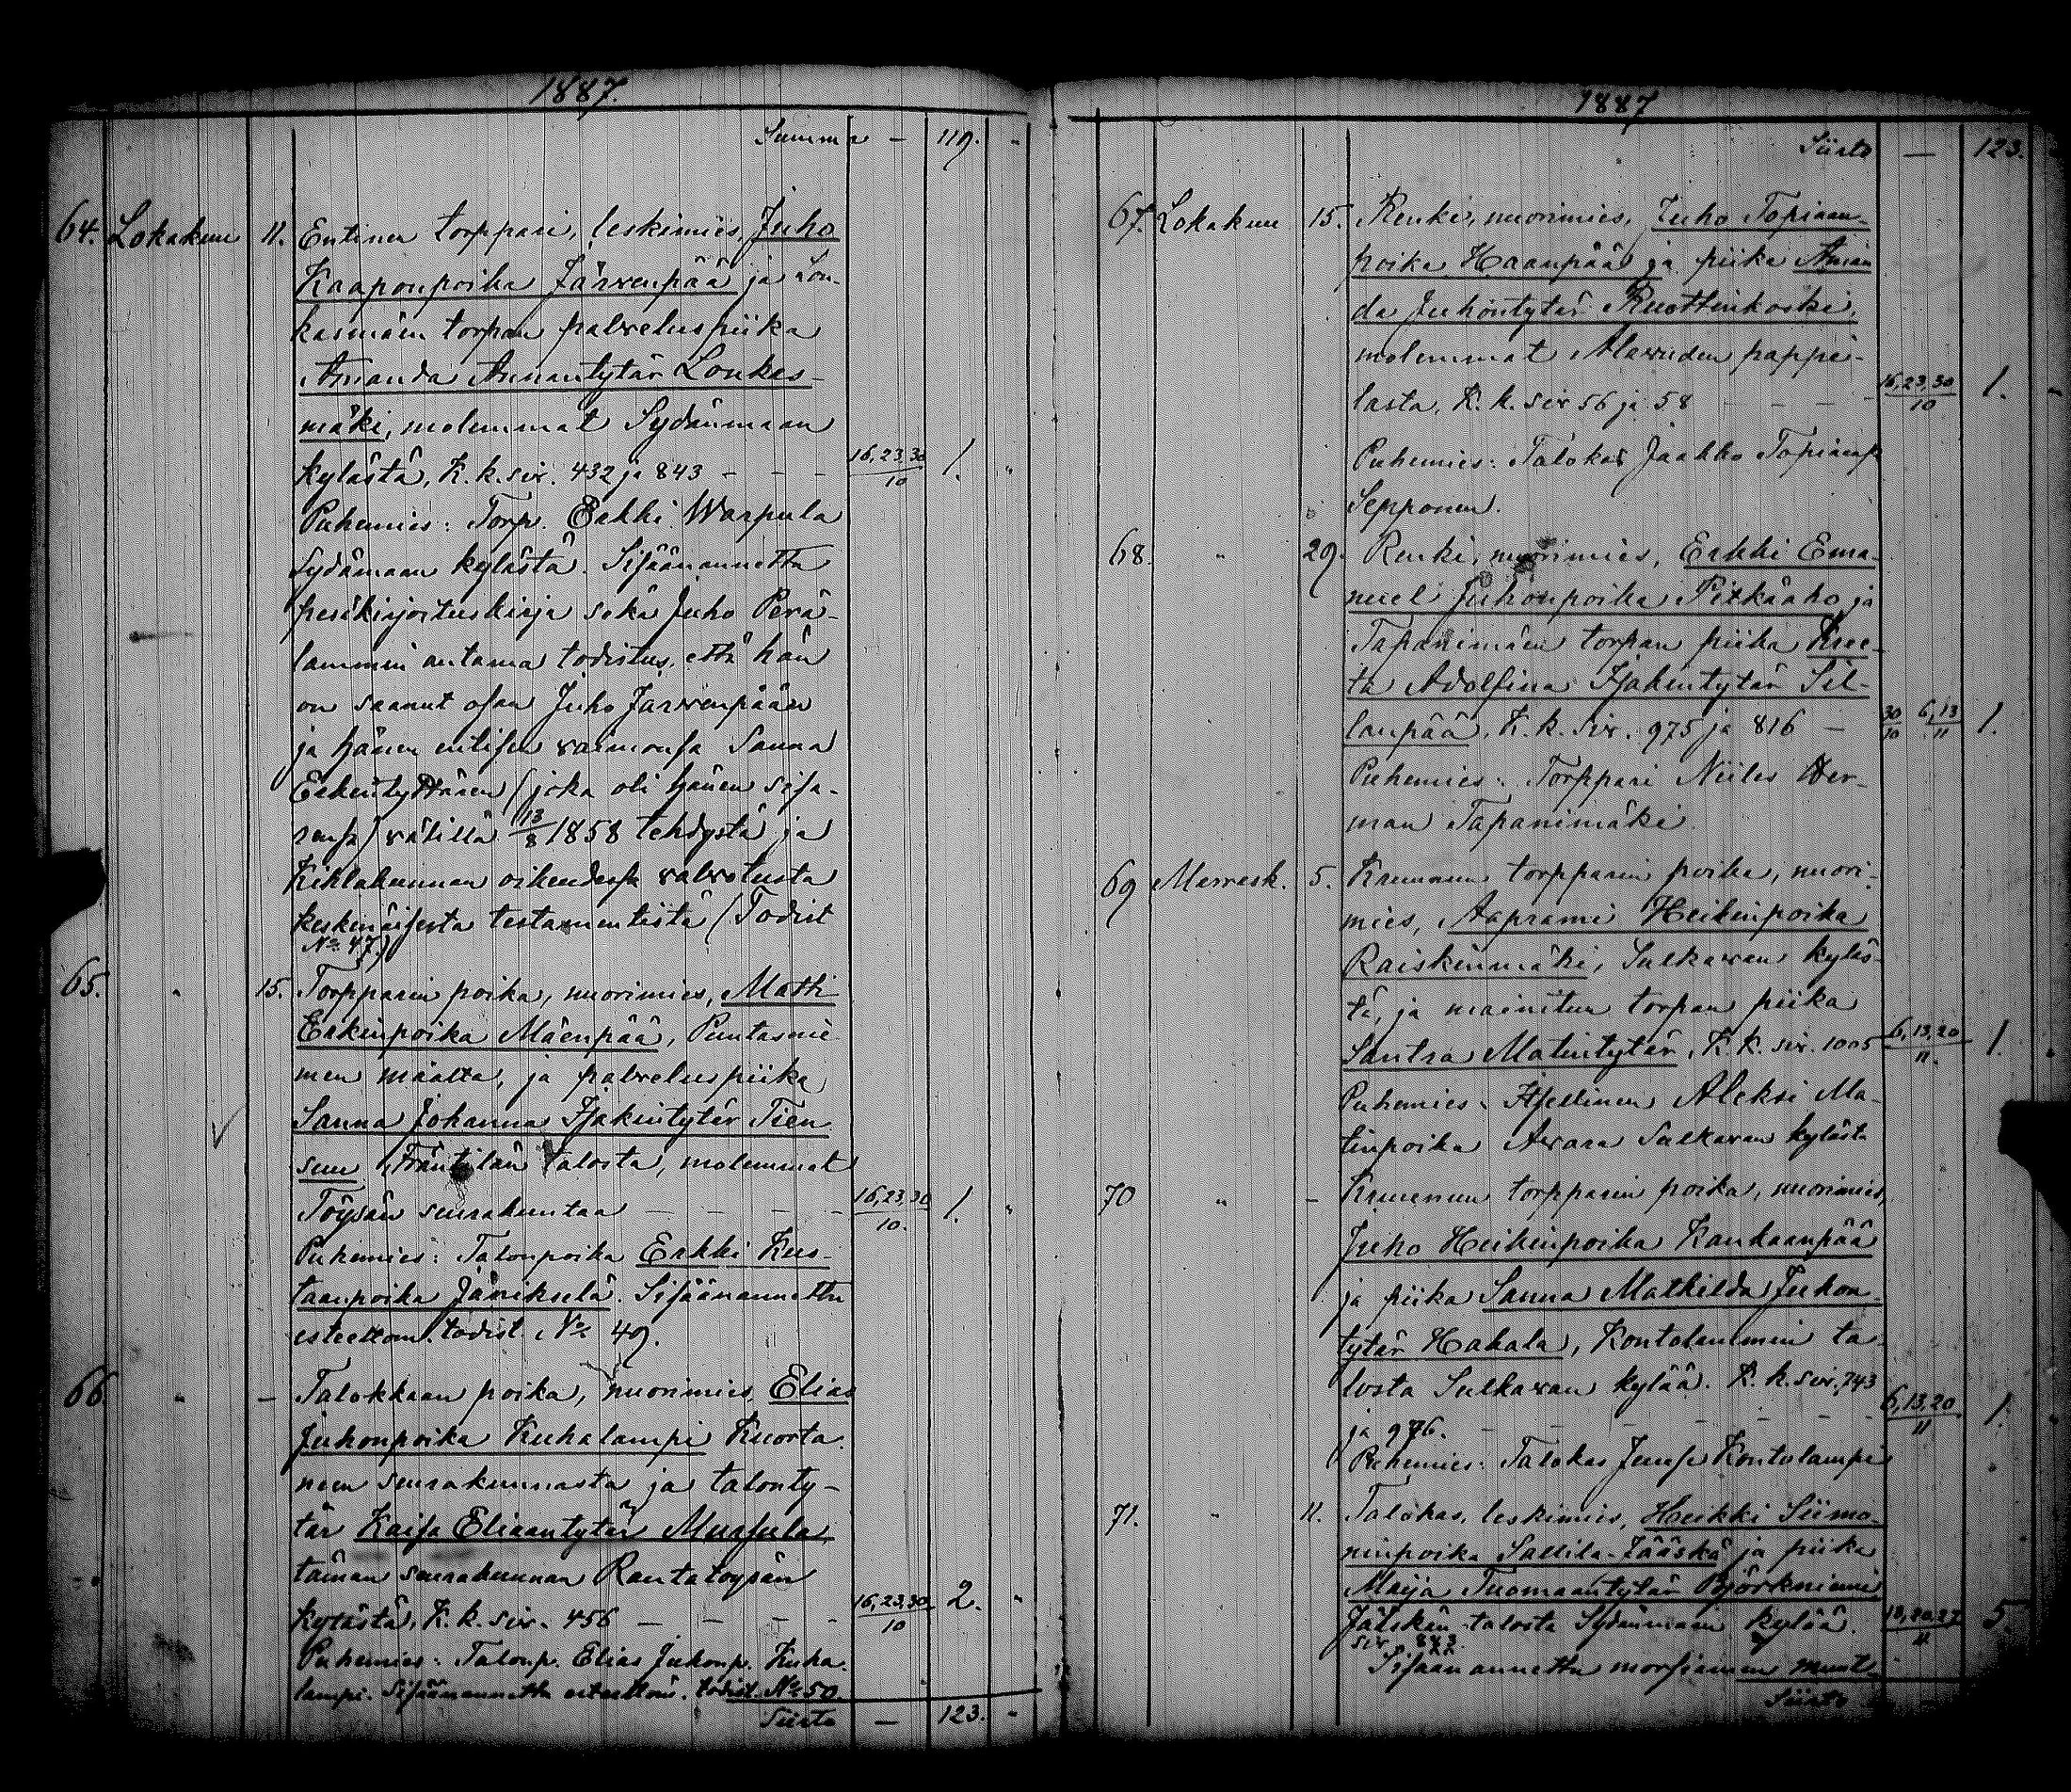 1887.
Summa — 119. "
64. Lokakuu 11. Entinen torppari, leskimies, Juho
Kaaponpoika Järwenpää ja Lou-
kasmäen torpan palveluspiika
Amanda Annantytär Loukas-
mäki, molemmat Sydänmaan
kylästä, K. k. siv. 432 ja 843 — — — 16,23,30/10 1. "
Puhemies: Torp. Erkki Warpula
Sydämaan kylästä. Sisäänannettu
pesäkirjoituskirja sekä Juho Perä-
lammin antama todistus, että hän
on saanut osan Juho Järwenpään
ja hänen entisen vaimonsa Sanna
Erkintyttären (joka oli hänen sisa-
rensa) välillä 13/8 1858 tehdystä ja
Kihlakunnan oikeudessa valvotusta
keskinäisestä testamentista (Todist
No 47.)
65. " 15. Torpparin poika, nuorimies, Matti
Erkinpoika Mäenpää, Puntasnie-
men maalta, ja palveluspiika
Sanna Johanna Isakintytär Tien
suu Träntilän talosta, molemmat
Töysän seurakuntaa — — — — 16,23,30/10. 1. "
Puhemies: Talonpoika Erkki Kus-
taanpoika Jäniksela. Sisäänannettu
esteettöm. todist. No 49.
66. " — Talokkaan poika, nuorimies, Elias
Juhonpoika Kuhalampi Kuorta-
neen seurakunnasta ja talonty-
tär Kaisa Eliaantytär
tämän seurakunnan Rantatöysän
kylästä, K. k. siv. 456 — — — — 16,23,30/10 2. "
Puhemies: Talonp. Elias Juhonp. Kuha-
lampi. Sisäänannettu esteettöm. todist. No 50.
Siirto — 123. "
1887
Siirto — 123.
67. Lokakuu 15. Renki, nuorimies, Juho Topiaan-
poika Haanpää ja piika Aman
da Juhontytär Ruottinkoski,
molemmat Alavuden pappi-
lasta, K. k. siv 56 ja 58 — — — — 16,23,30/10 1. "
Puhemies: Talokas Jaakko Topianp.
Sepponen.
68. " 29. Renki, nuorimies, Erkki Ema-
nuel Juhonpoika Pitkäaho ja
Tapanimäen torpan piika Kree-
ta Adolfina Isakintytär Sil-
lanpää, K. k. siv. 975 ja 816 — 30/10 6,13/11 1.
Puhemies: Torppari Niiles Her-
man Tapanimäki.
69 Marrask. 5. Kruunun torpparin poika, nuori-
mies, Aaprami Heikinpoika
Raiskinmäki, Sulkavan kyläs-
tä, ja mainitun torpan piika
Santra Matintytär, K. k. siv. 1005 6,13,20/11. 1.
Puhemies: Itsellinen Aleksi Ma-
tinpoika Avara Sulkavan kylästä
70 " — Kruunun torpparin poika, nuorimies,
Juho Heikinpoika Kankaanpää
ja piika Sanna Mathilda Juhon-
tytär Hakala, Kontolammin ta-
losta Sulkavan kylää. K. k. siv. 743
ja 976. — — — — — — 6,13,20/11 1.
Puhemies: Talokas Kontolampi
71. " 11. Talokas, leskimies, Heikki Siimo-
ninpoika Sallila-Jääskä ja piika
Maija Tuomaantytär Björkniemi
Jääskän talosta Sydänmaan kylää. 13,20,27/11 5.
siv. 843.
Sisäänannettu morsiamen muut-
Siirto